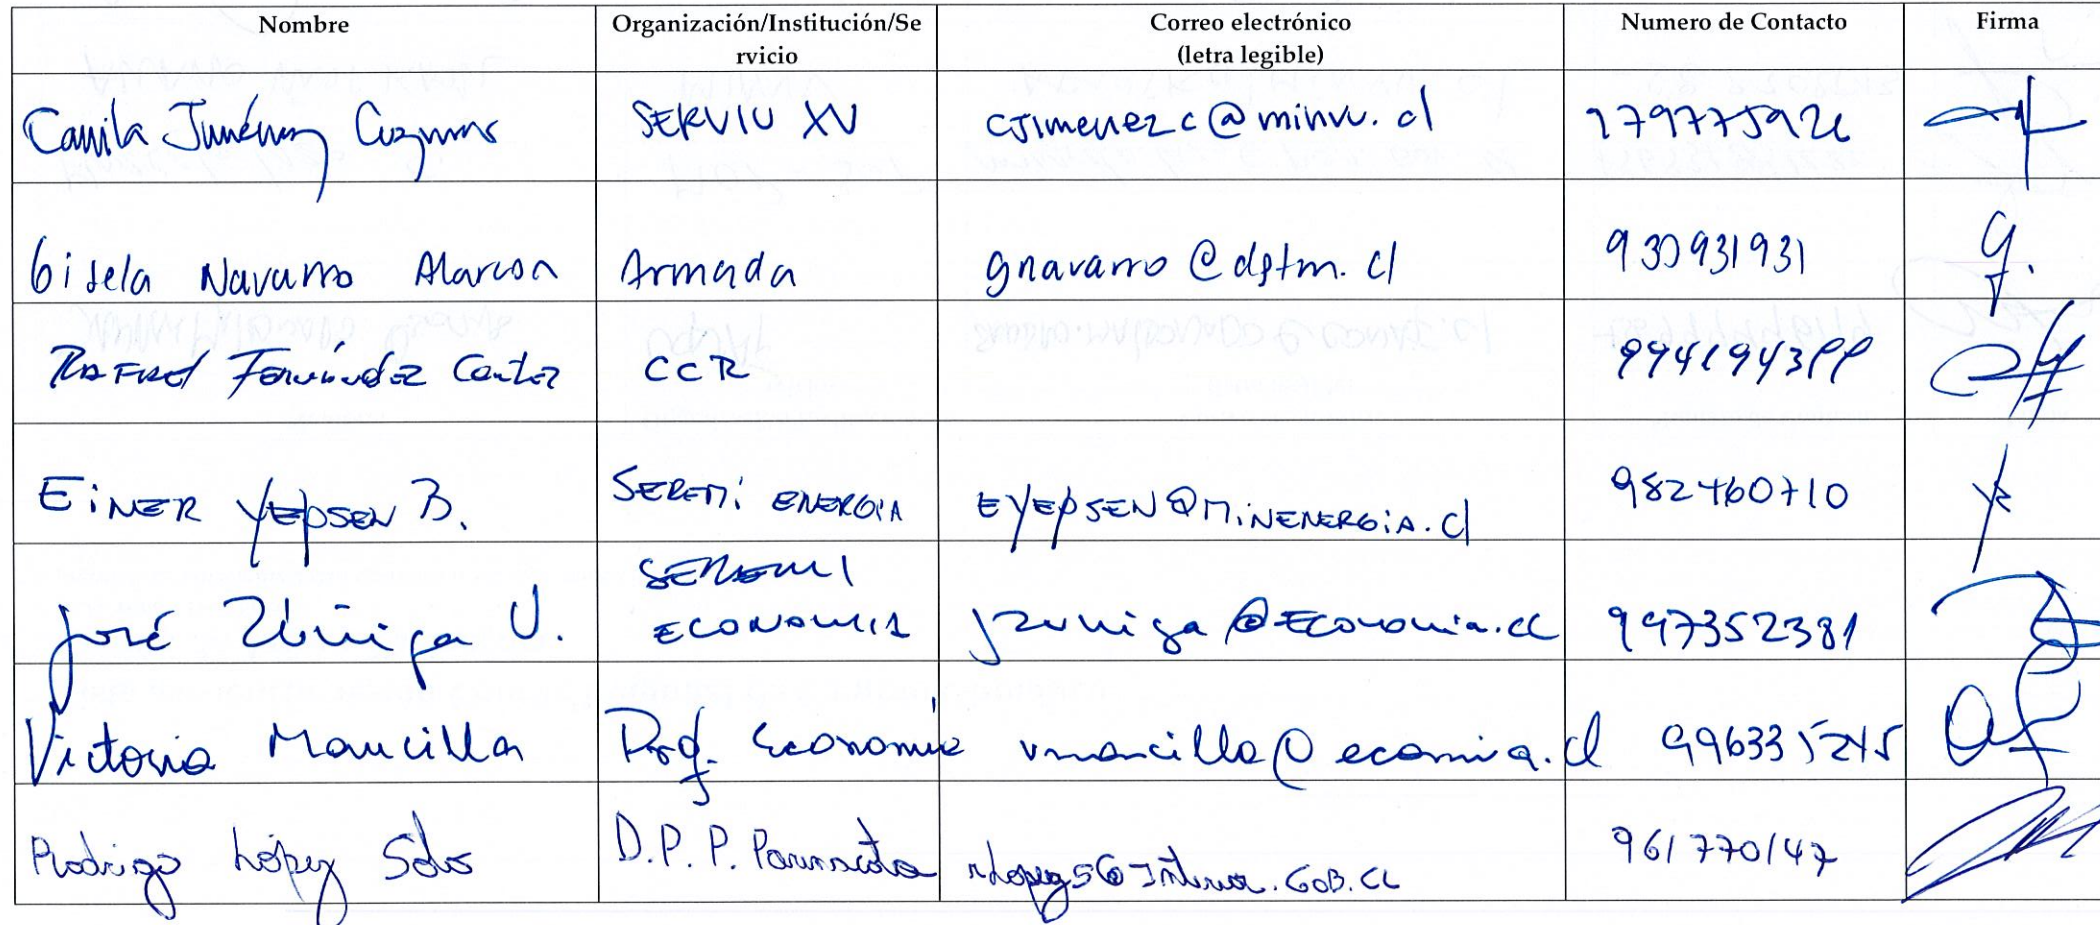 Nombre Organización/Institución/Se Correo electrónico Numero de Contacto Firma
rvicio (letra legible)
Camila Jiménez SERVIU XV cjimenezc@minvu.cl
Gisela Navarro Alarcon Armada gnavarro@dgtm.cl 930931931
Rafael Fernández CCR
EiNER YEPSEN B. SEREMi ENERGIA EYEPSEN@MiNENERGiA.Cl 982460710
SEREMI
José Zúñiga U. ECONOMIA jzuniga@Economia.cl 997352381
Victoria Mancilla Prof. Economía vmancilla@ecomia.cl 996335245
Rodrigo López Soto D.P.P. Parinacota rlopezs@Interior.GOB.CL 961770147